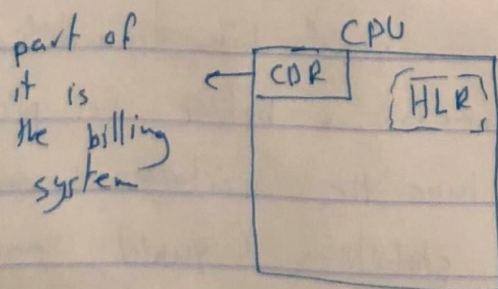 part of
it is
the billing
system
CPU
CDR
HLR